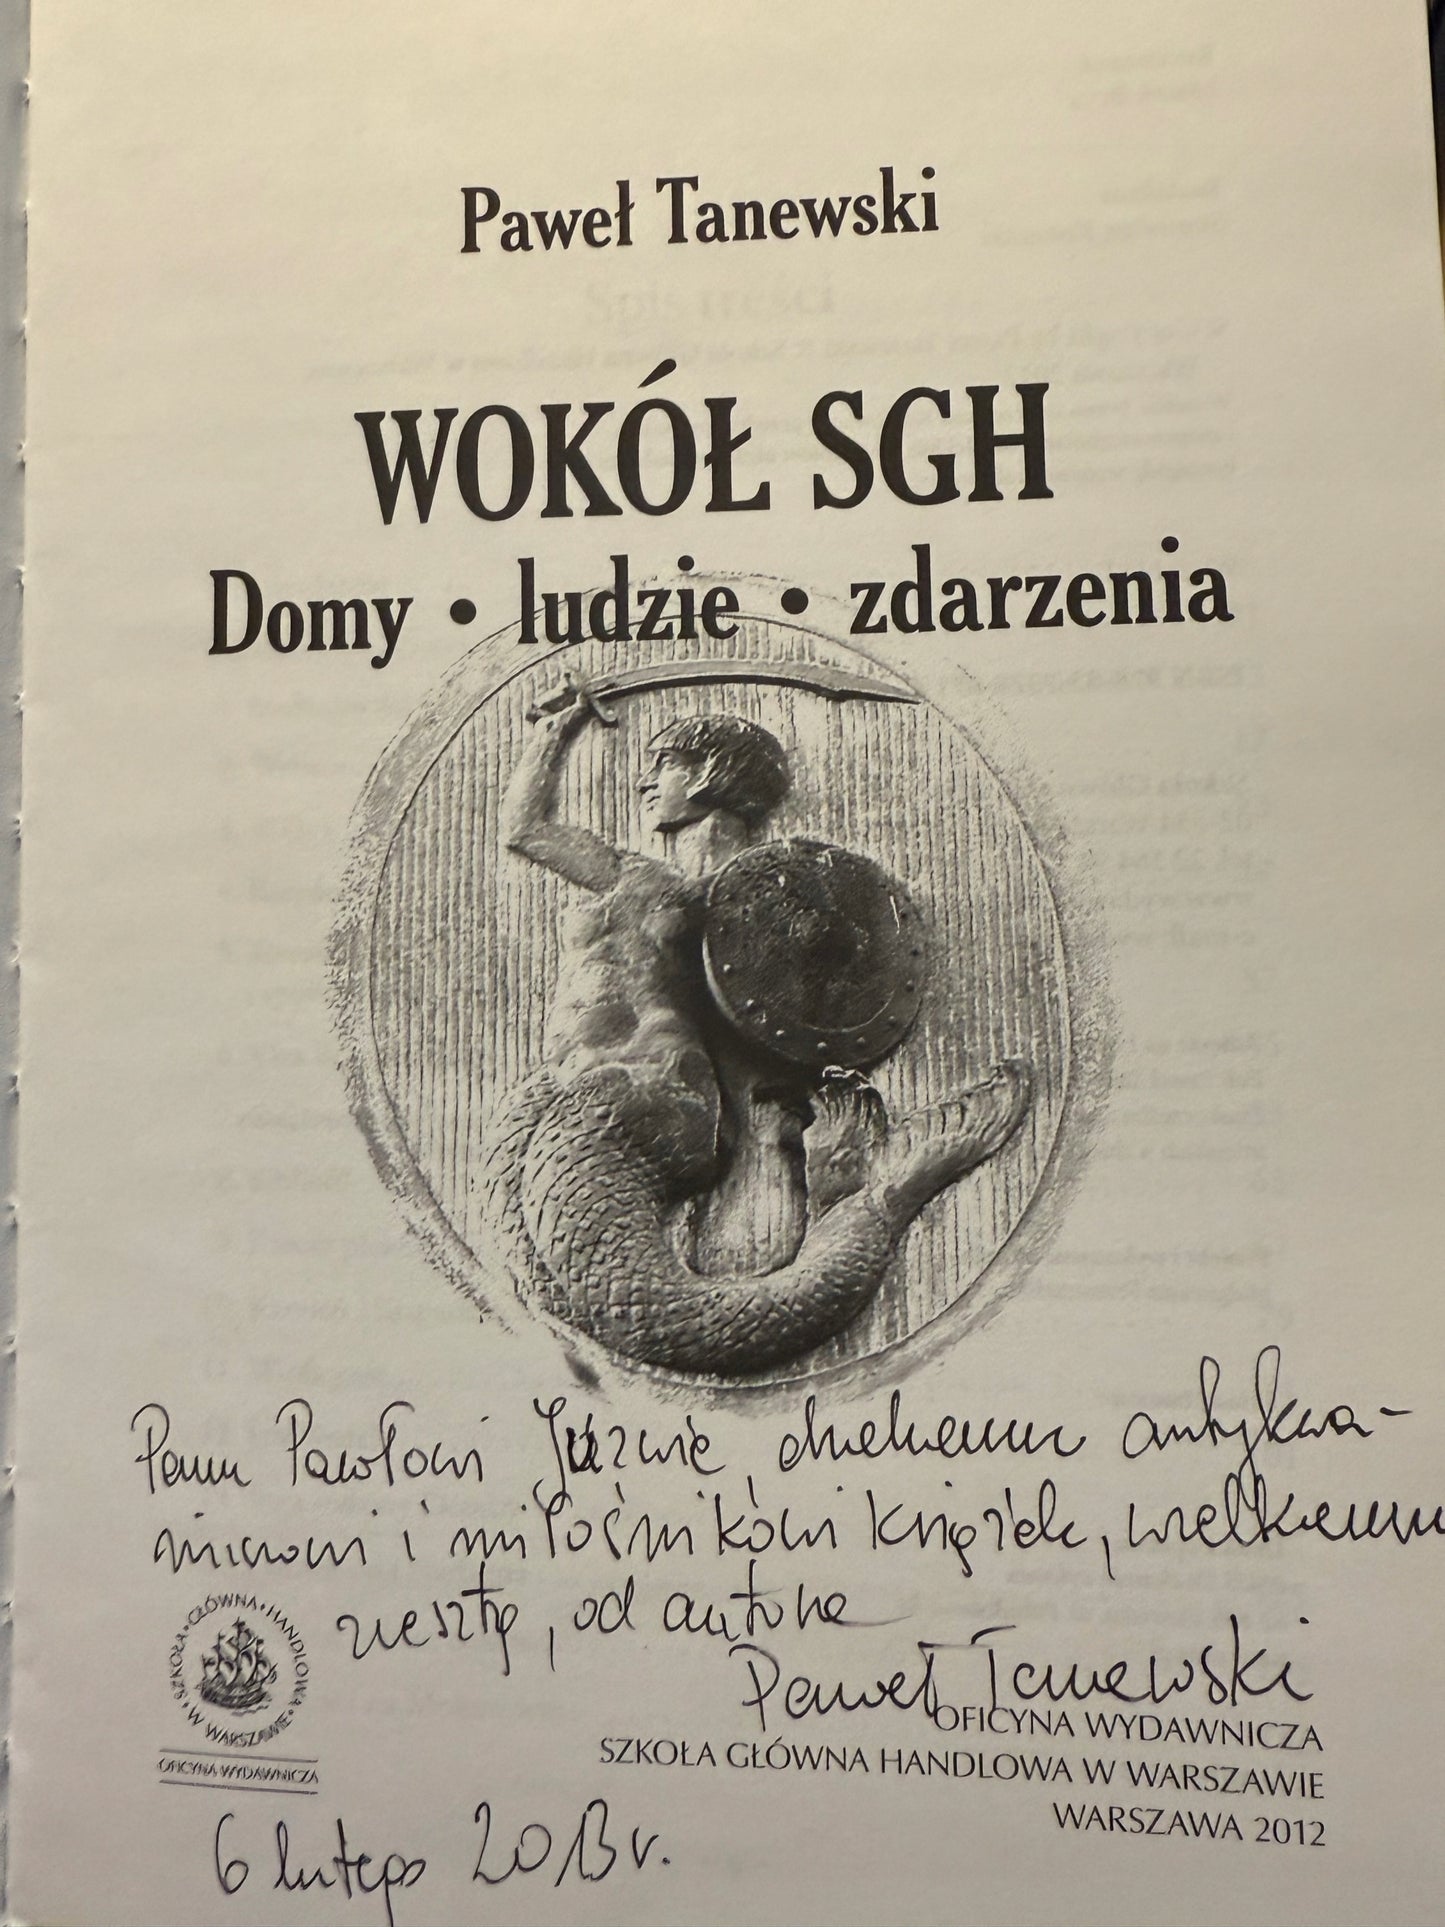 Paweł Tanewski
WOKÓŁ SGH
Domy • ludzie • zdarzenia
Panu Pawłowi Józwie, ciekawemu antykwa-
riuszowi i miłośnikowi książek, wielkiemu
zresztą, od autora
Paweł Tanewski
SZKOŁA • GŁÓWNA • HANDLOWA • W WARSZAWIE •
OFICYNA WYDAWNICZA
OFICYNA WYDAWNICZA
SZKOŁA GŁÓWNA HANDLOWA W WARSZAWIE
WARSZAWA 2012
6 lutego 2013 r.